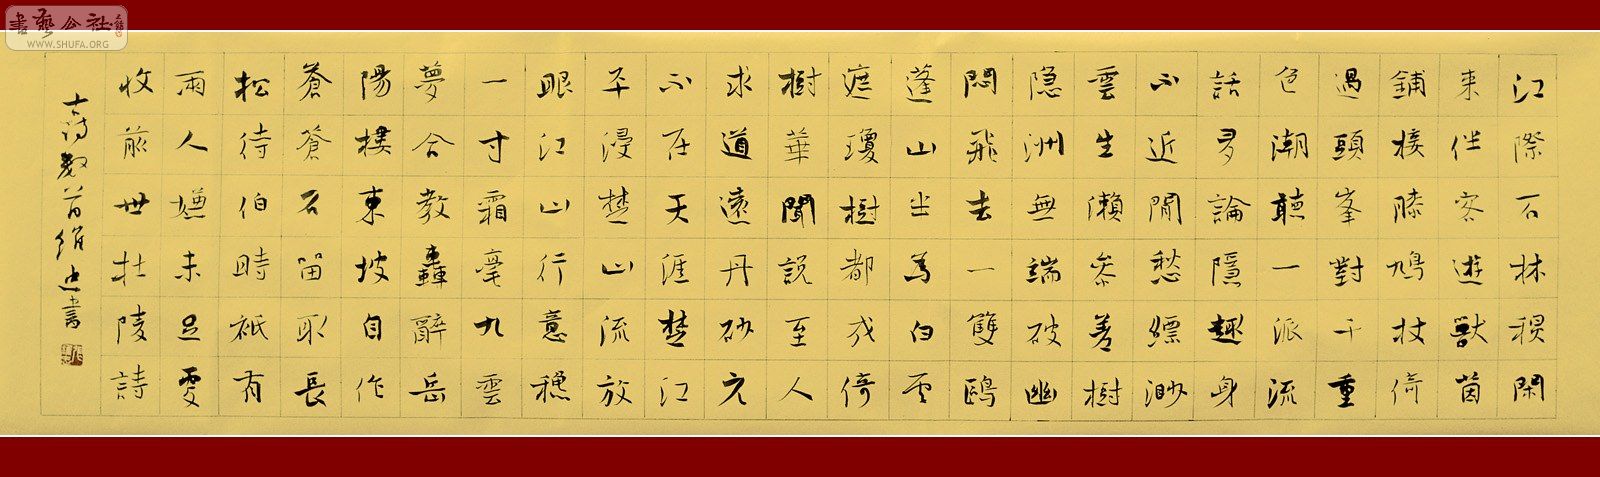 書藝公社
WWW.SHUFA.ORG
江際石林積閑
來伴客遊獸茵
鋪接膝鳩杖倚
過頭峯對千重
色潮聽一派流
話多論隱趣身
不近閒愁縹渺
雲生懶參差樹
隐洲無端破幽
悶飛去一雙鷗
蓬山坐為白雲
遮瓊樹都成倚
樹華聞說至人
求道遠丹砂元
不在天涯楚江
平浸楚山流放
眼江山行意穩
一寸霜毫九雲
夢合教轟醉岳
陽樓東坡自作
蒼蒼石留取長
松待伯時衹有
兩人嫌未足更
收前世杜陵詩
書